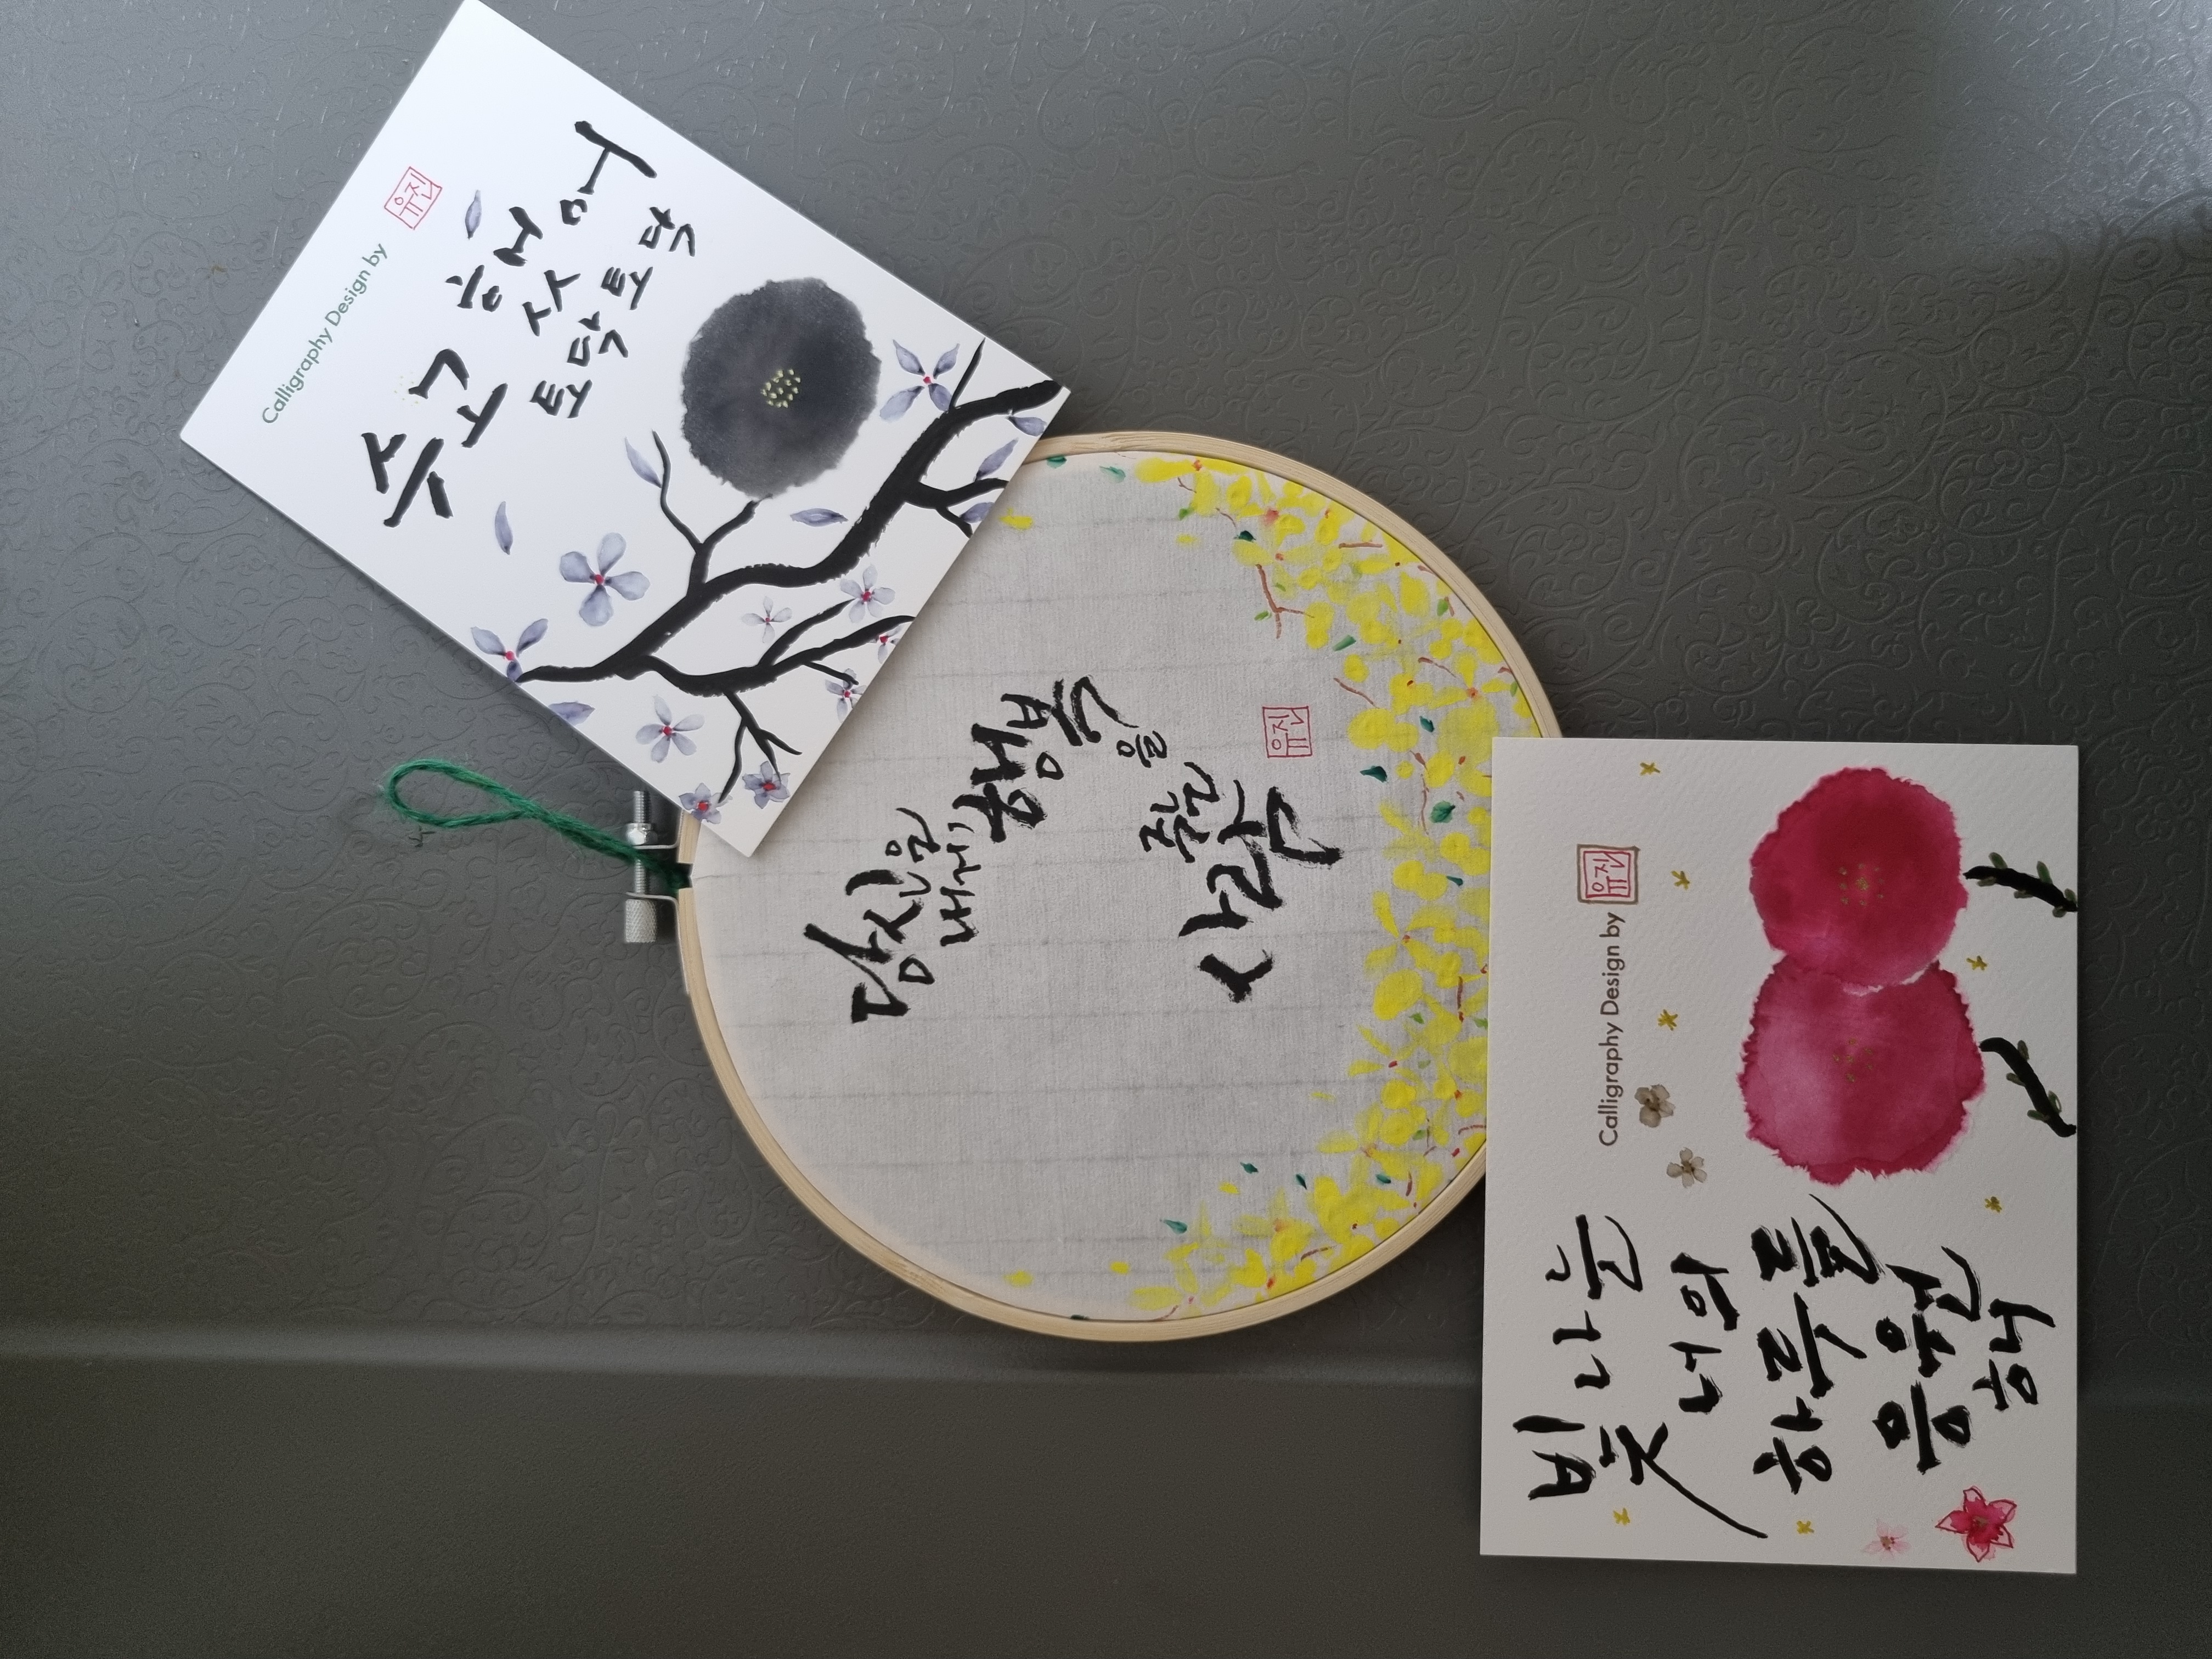 Calligraphy Design by 유진
수고했어
토닥토닥
당신은
내게
행복
을
주는
사람
유진
빛나는
너의
하루를
응원
해
Calligraphy Design by 유진